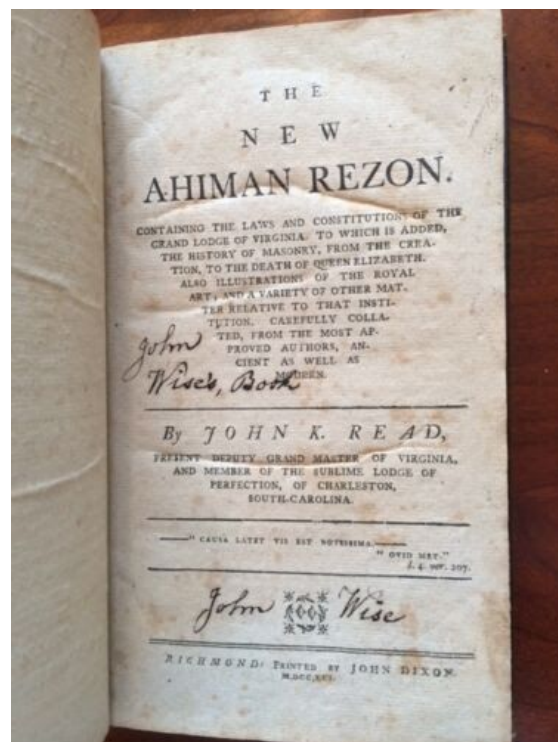 THE
NEW
AHIMAN REZON.
CONTAINING THE LAWS AND CONSTITUTIONS OF THE
GRAND LODGE OF VIRGINIA. TO WHICH IS ADDED,
THE HISTORY OF MASONRY, FROM THE CREA-
TION, TO THE DEATH OF QUEEN ELIZABETH.
ALSO ILLUSTRATIONS OF THE ROYAL
ART; AND A VARIETY OF OTHER MAT-
TER RELATIVE TO THAT INSTI-
TUTION. CAREFULLY COLLA-
TED, FROM THE MOST AP-
PROVED AUTHORS, AN-
CIENT AS WELL AS
MODERN.
John
Wise's, Book
By JOHN K. READ,
PRESENT DEPUTY GRAND MASTER OF VIRGINIA,
AND MEMBER OF THE SUBLIME LODGE OF
PERFECTION, OF CHARLESTON,
SOUTH-CAROLINA.
" CAUSA LATET VIS EST NOTISSIMA.
" OVID MET."
l. 4. ver. 207.
John Wise
RICHMOND: PRINTED BY JOHN DIXON.
M,DCC,XCI.